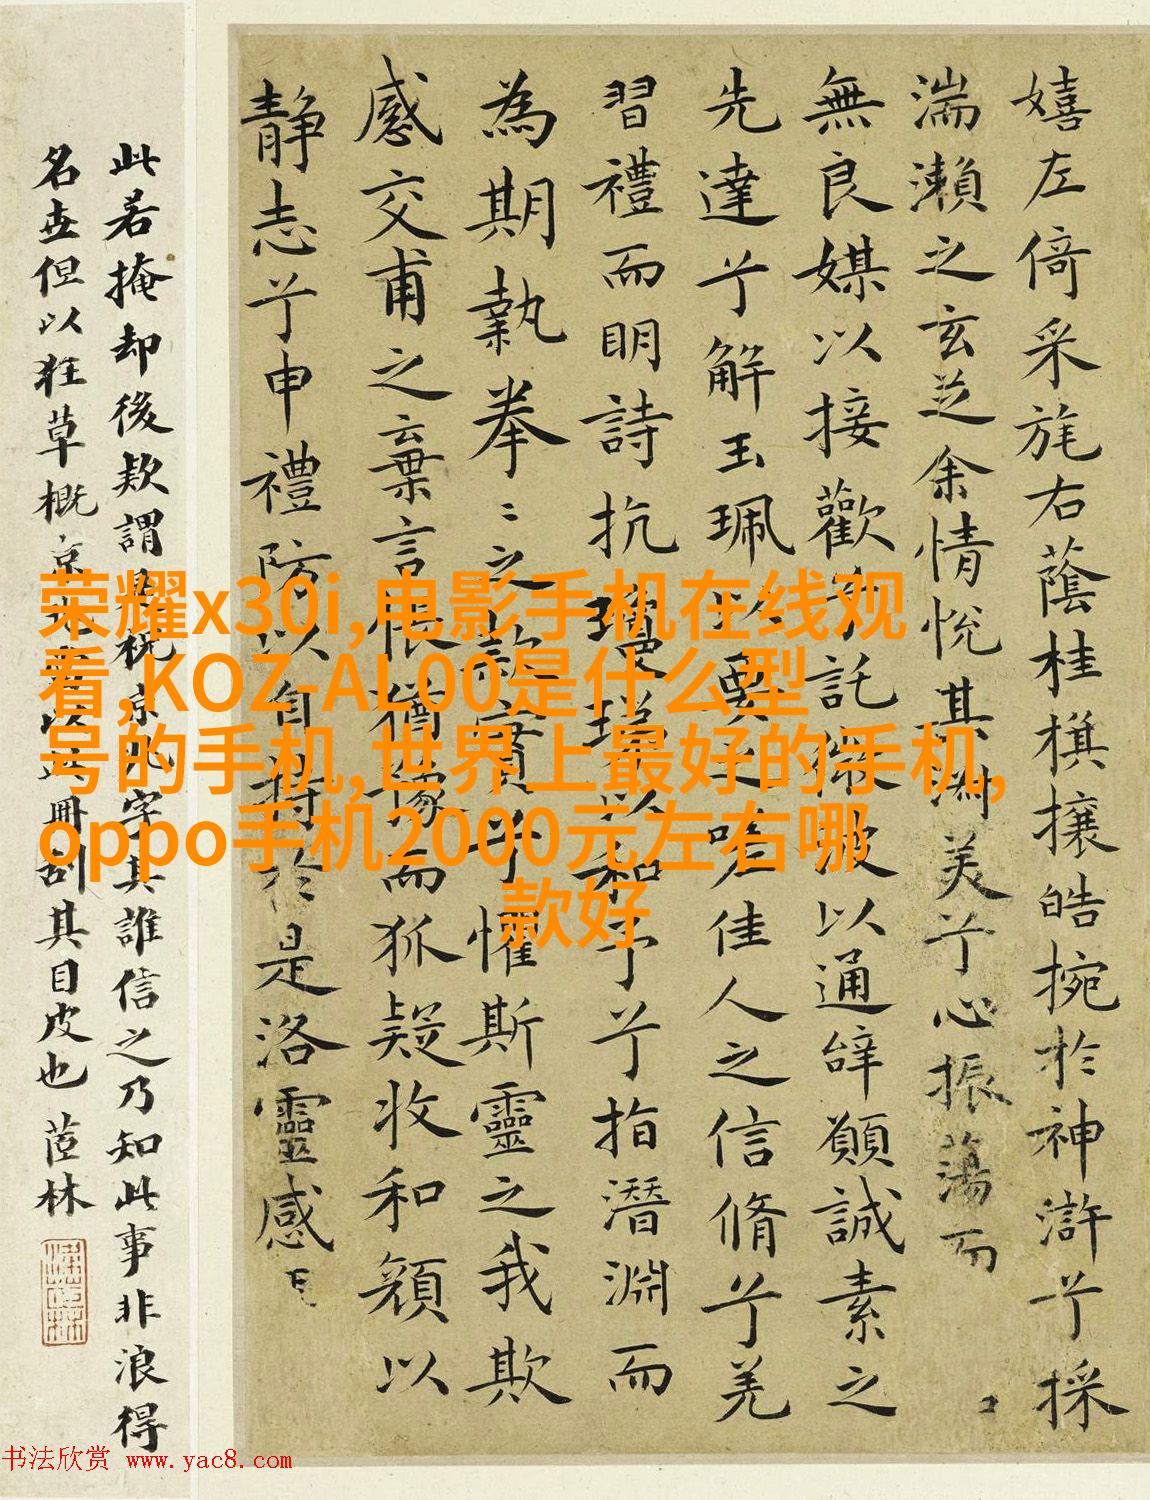 嬉左倚采旄右蔭桂旗攘皓捥於神滸兮採
湍瀨之玄芝余情悅其淑美兮心振蕩而
無良媒以接歡兮託微波以通辭願誠素之
先達兮解玉珮以要之嗟佳人之信脩兮羌
習禮而明詩抗瓊珶以和予兮指潛淵而
為期執拳〻之款實兮懼斯靈之我欺
感交甫之棄言悵猶豫而狐疑收和顏以
静志兮申禮防以自持於是洛靈感
此若掩却後款謂是祝京兆字其誰信之乃知此事非浪得
名世但以狂草概京以此冊刮其目皮也 茝林
荣耀x30i,电影手机在线观
看,KOZ-AL00是什么型
号的手机,世界上最好的手机,
oppo手机2000元左右哪
款好
书法欣赏 www.yac8.com